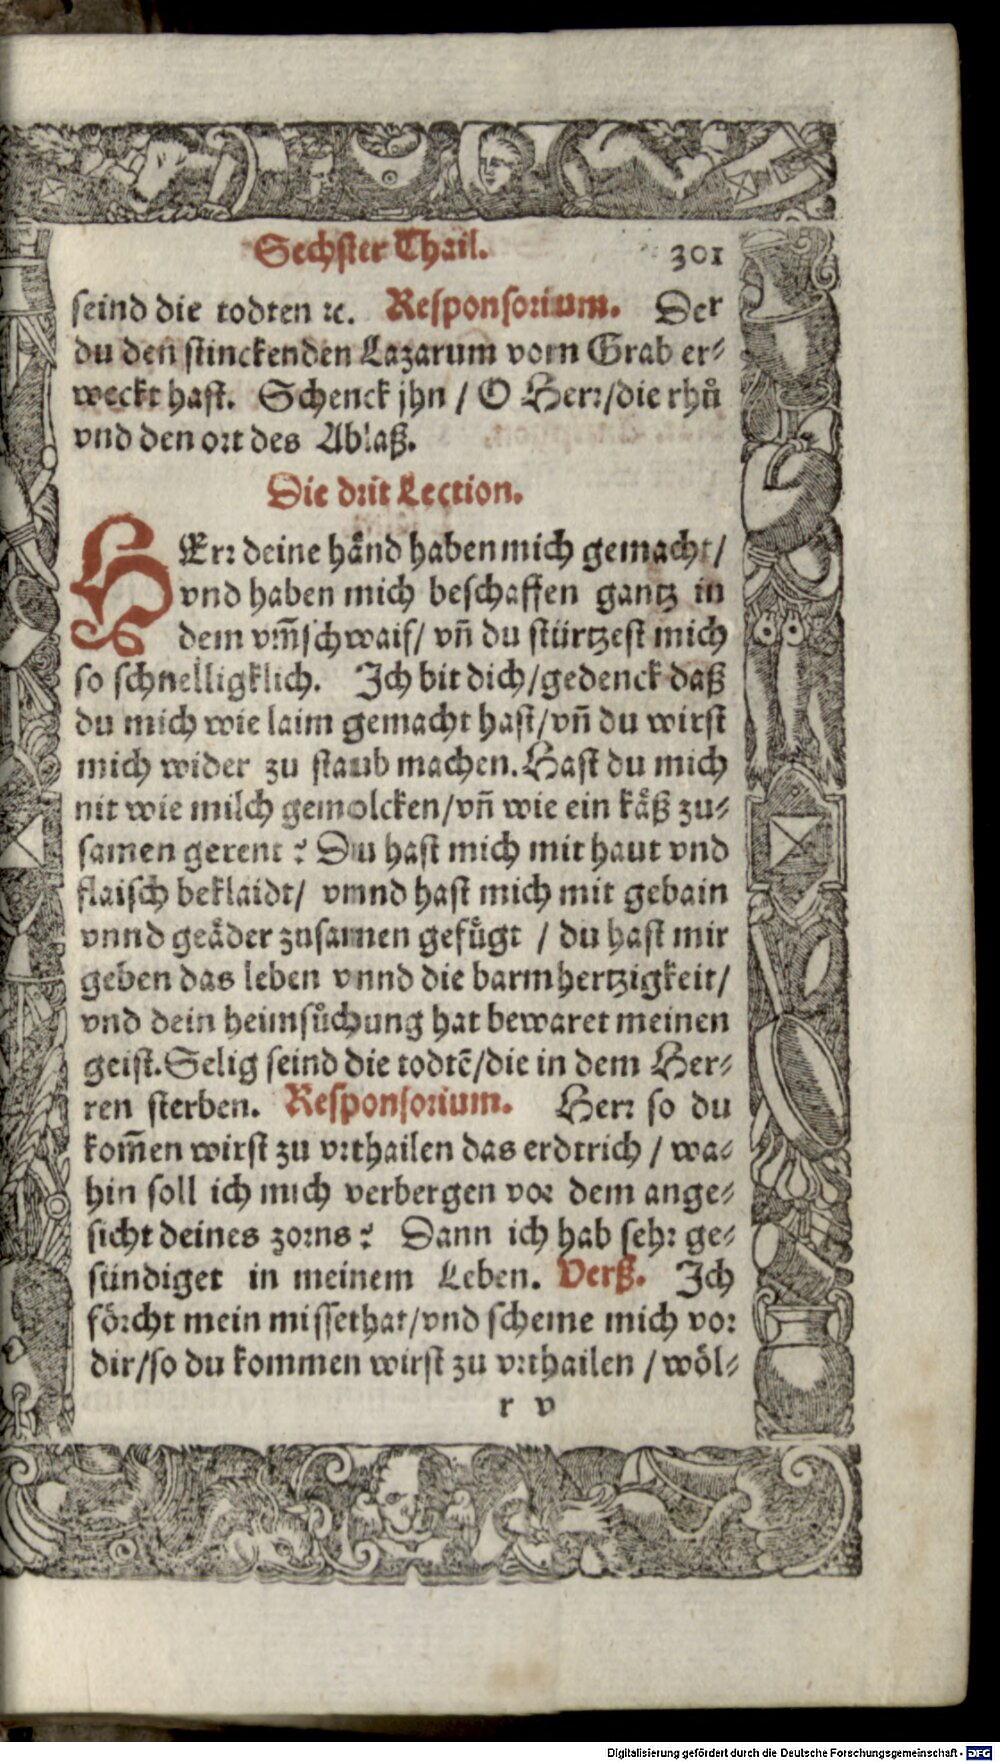 Sechster Thail. 301
seind die todten ꝛc. Responsorium. Der
du den stinckenden Lazarum vom Grab er⸗
weckt hast. Schenck jhn / O Herr/die rhů
vnd den ort des Ablaß.
Die drit Lection.
HErr deine hånd haben mich gemacht/
vnd haben mich beschaffen gantz in
dem vm̃schwaif/ vñ du stürtzest mich
so schnelligklich. Ich bit dich/gedenck daß
du mich wie laim gemacht hast/vñ du wirst
mich wider zu staub machen. Hast du mich
nit wie milch gemolcken/vñ wie ein kåß zu⸗
samen gerent? Du hast mich mit haut vnd
flaisch beklaidt/ vnnd hast mich mit gebain
vnnd geåder zusamen gefůgt / du hast mir
geben das leben vnnd die barmhertzigkeit/
vnd dein heimsůchung hat bewaret meinen
geist. Selig seind die todtē/die in dem Her⸗
ren sterben. Responsorium. Herr so du
kom̃en wirst zu vrthailen das erdtrich / wa⸗
hin soll ich mich verbergen vor dem ange⸗
sicht deines zorns? Dann ich hab sehr ge⸗
sündiget in meinem Leben. Verß. Ich
förcht mein missethat/vnd scheme mich vor
dir/so du kommen wirst zu vrthailen / wöl⸗
r v
Digitalisierung gefördert durch die Deutsche Forschungsgemeinschaft - DFG